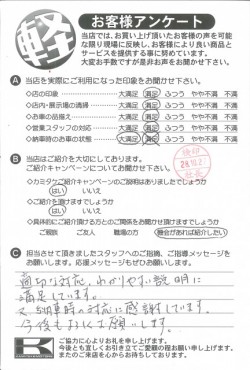 軽
お客様アンケート
当店では、お買い上げ頂いたお客様の声を可能
な限り現場に反映し、お客様により良い商品と
サービスを提供する事に努めています。
大変お手数ですが是非お声をお聞かせ下さい。
A 当店を実際にご利用になった印象をお聞かせ下さい。
◇店の印象 大満足 満足 ふつう やや不満 不満
◇店内・展示場の清掃 大満足 満足 ふつう やや不満 不満
◇お車の品揃え 大満足 満足 ふつう やや不満 不満
◇営業スタッフの対応 大満足 満足 ふつう やや不満 不満
◇納車時のお車の状態 大満足 満足 ふつう やや不満 不満
B 当店はご紹介を大切にしております。
ご紹介キャンペーンについてお聞かせください。
◇カミタケご紹介キャンペーンのご説明はありましたでしょうか
はい いいえ
◇ご紹介を頂けますでしょうか
はい いいえ
◇具体的にご紹介頂ける方とのご関係をお聞かせ頂けますでしょうか
ご親族 ご友人 職場の方 機会があれば紹介したい
C 担当させて頂きましたスタッフへのご指摘、ご指導メッセージを
お願いします。応援メッセージもぜひお願いします。
適切な対応、わかりやすい説明に
満足しています。
又、納車時の対応に感謝しています。
今後もよろしくお願いします。
K
ご協力に心よりお礼を申し上げます。
今後とも宜しくお引き立てご愛顧の程お願い申し上げます。
またのご来店を心からお待ちしております。